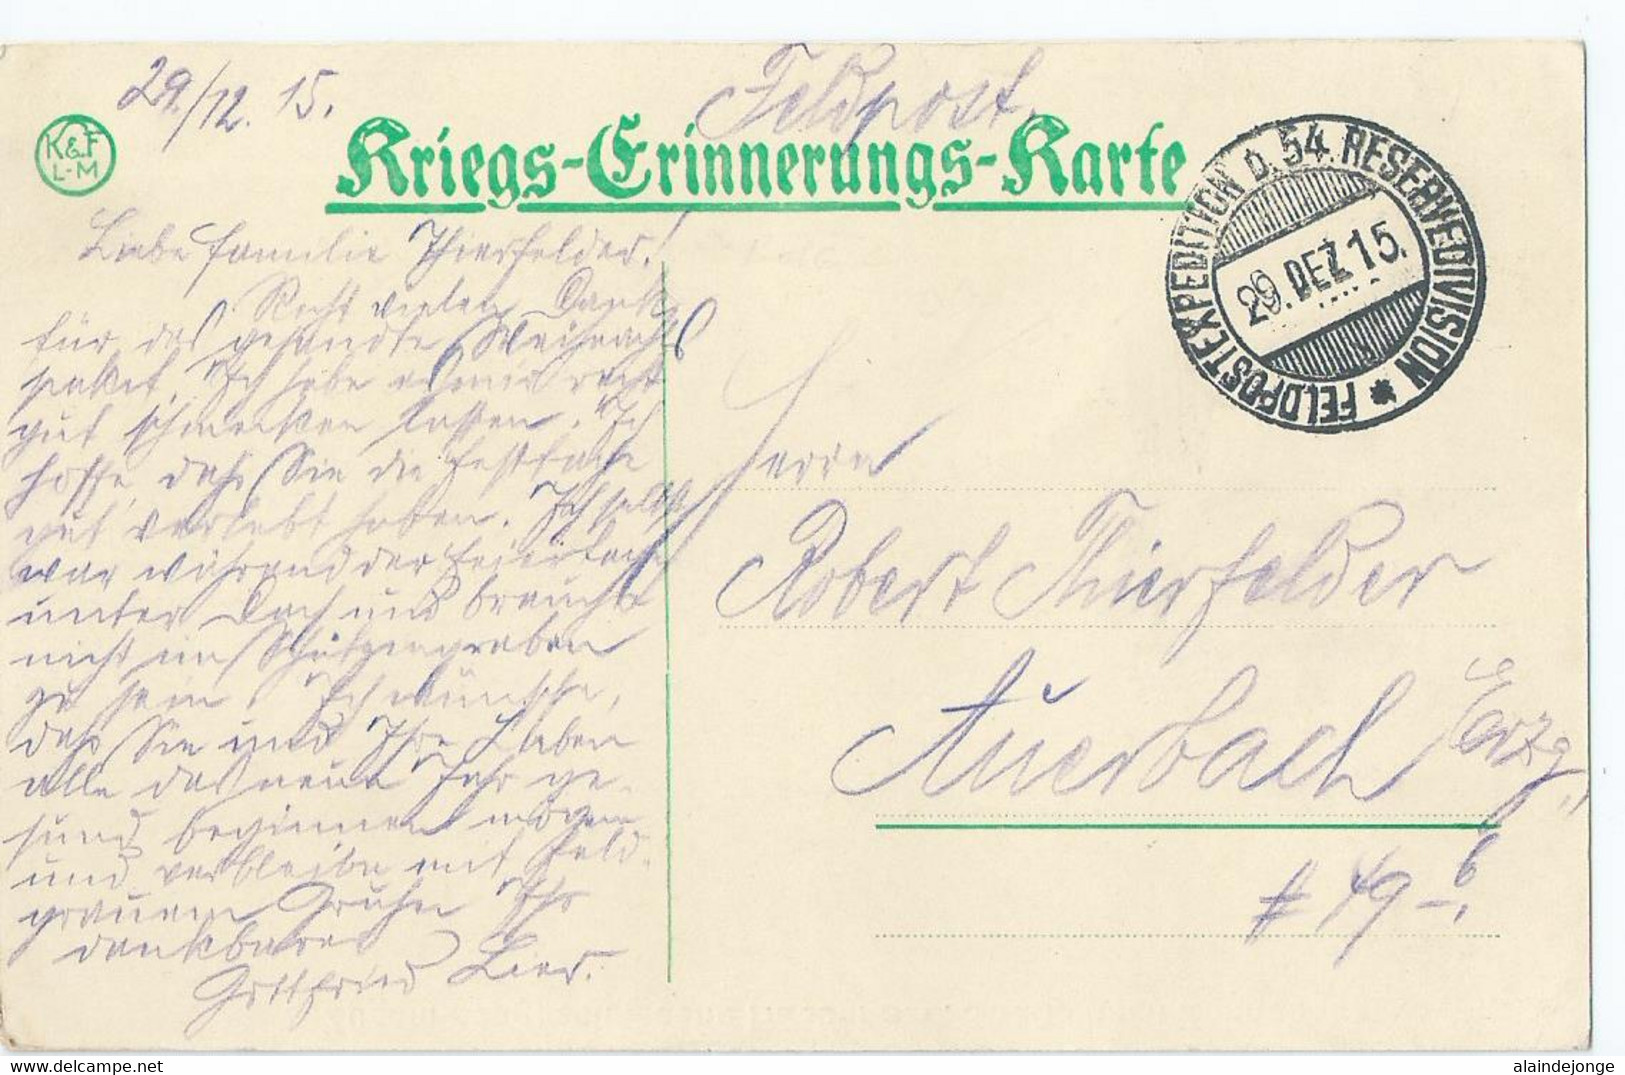 29./12. 15.
Feldpost.
K&F
L-M
Kriegs-Erinnerungs-Karte
FELDPOSTEXPEDITION D. 54. RESERVEDIVISION *
29. DEZ. 15.
Liebe Familie Thierfelder!
Recht vielen Dank
für das gesandte Weihnachts
paket. Ich habe es mir recht
gut schmecken lassen. Ich
hoffe, daß Sie die Festtage
gut verlebt hatten. Ich selbst
war während der Feiertage
unter Dach und brauchte
nicht im Schützengraben
zu sein. Ich wünsche,
daß Sie und Ihre Lieben
alle das neue Jahr ge-
sund beginnen mögen
und verbleibe mit feld-
grauem Gruße Ihr
dankbarer
Gottfried Lier.
Herrn
Robert Thierfelder
Auerbach Erzg.
# 49 -
alaindejonge